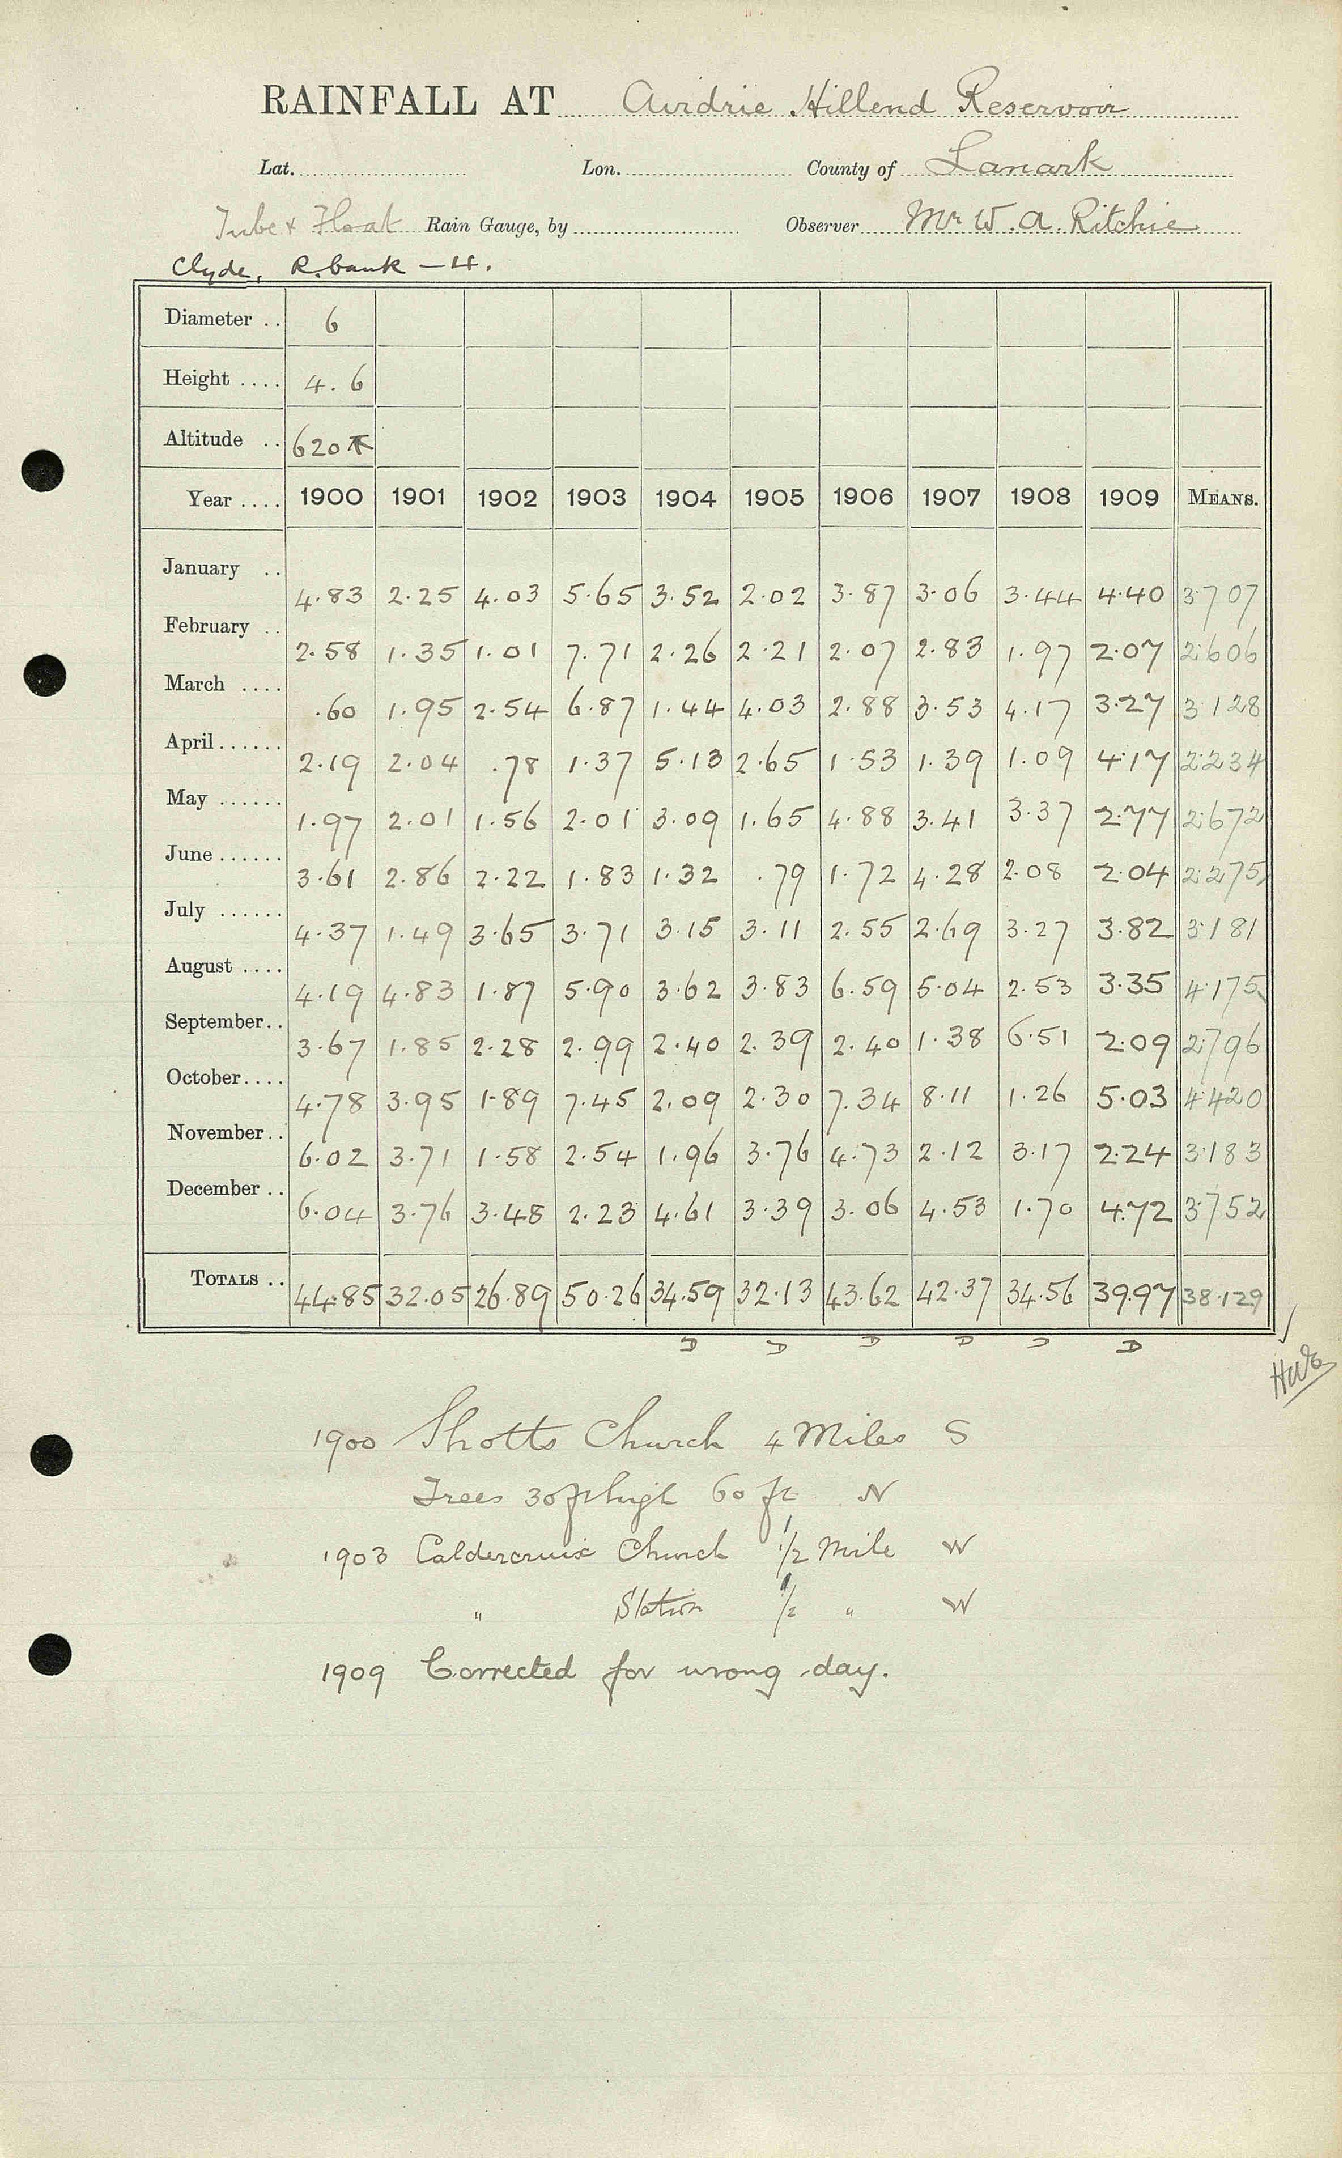 RAINFALL AT Airdrie Hillend Reservoir
Lat. Lon. County of Lanark
Tube & Float Rain Gauge, by Observer Mr W. A. Ritchie
Clyde, R. bank — 4.
Diameter .. 6
Height .... 4.6
Altitude .. 620
Year .... 1900 1901 1902 1903 1904 1905 1906 1907 1908 1909 MEANS.
January .. 4.83 2.25 4.03 5.65 3.52 2.02 3.87 3.06 3.44 4.40 3.707
February .. 2.58 1.35 1.01 7.71 2.26 2.21 2.07 2.83 1.97 2.07 2.606
March .... .60 1.95 2.54 6.87 1.44 4.03 2.88 3.53 4.17 3.27 3.128
April ...... 2.19 2.04 .78 1.37 5.13 2.65 1.53 1.39 1.09 4.17 2.234
May ...... 1.97 2.01 1.56 2.01 3.09 1.65 4.88 3.41 3.37 2.77 2.672
June ...... 3.61 2.86 2.22 1.83 1.32 .79 1.72 4.28 2.08 2.04 2.275
July ...... 4.37 1.49 3.65 3.71 3.15 3.11 2.55 2.69 3.27 3.82 3.181
August .... 4.19 4.83 1.87 5.90 3.62 3.83 6.59 5.04 2.53 3.35 4.175
September .. 3.67 1.85 2.28 2.99 2.40 2.39 2.40 1.38 6.51 2.09 2.796
October .... 4.78 3.95 1.89 7.45 2.09 2.30 7.34 8.11 1.26 5.03 4.420
November .. 6.02 3.71 1.58 2.54 1.96 3.76 4.73 2.12 3.17 2.24 3.183
December .. 6.04 3.76 3.48 2.23 4.61 3.39 3.06 4.53 1.70 4.72 3.752
TOTALS .. 44.85 32.05 26.89 50.26 34.59 32.13 43.62 42.37 34.56 39.97 38.129
D D D D D D
1900 Shotts Church 4 Miles S
Trees 30 ft high 60 ft N
1903 Caldercruix Church 1/2 Mile W
" Station 1/2 " W
1909 Corrected for wrong day.